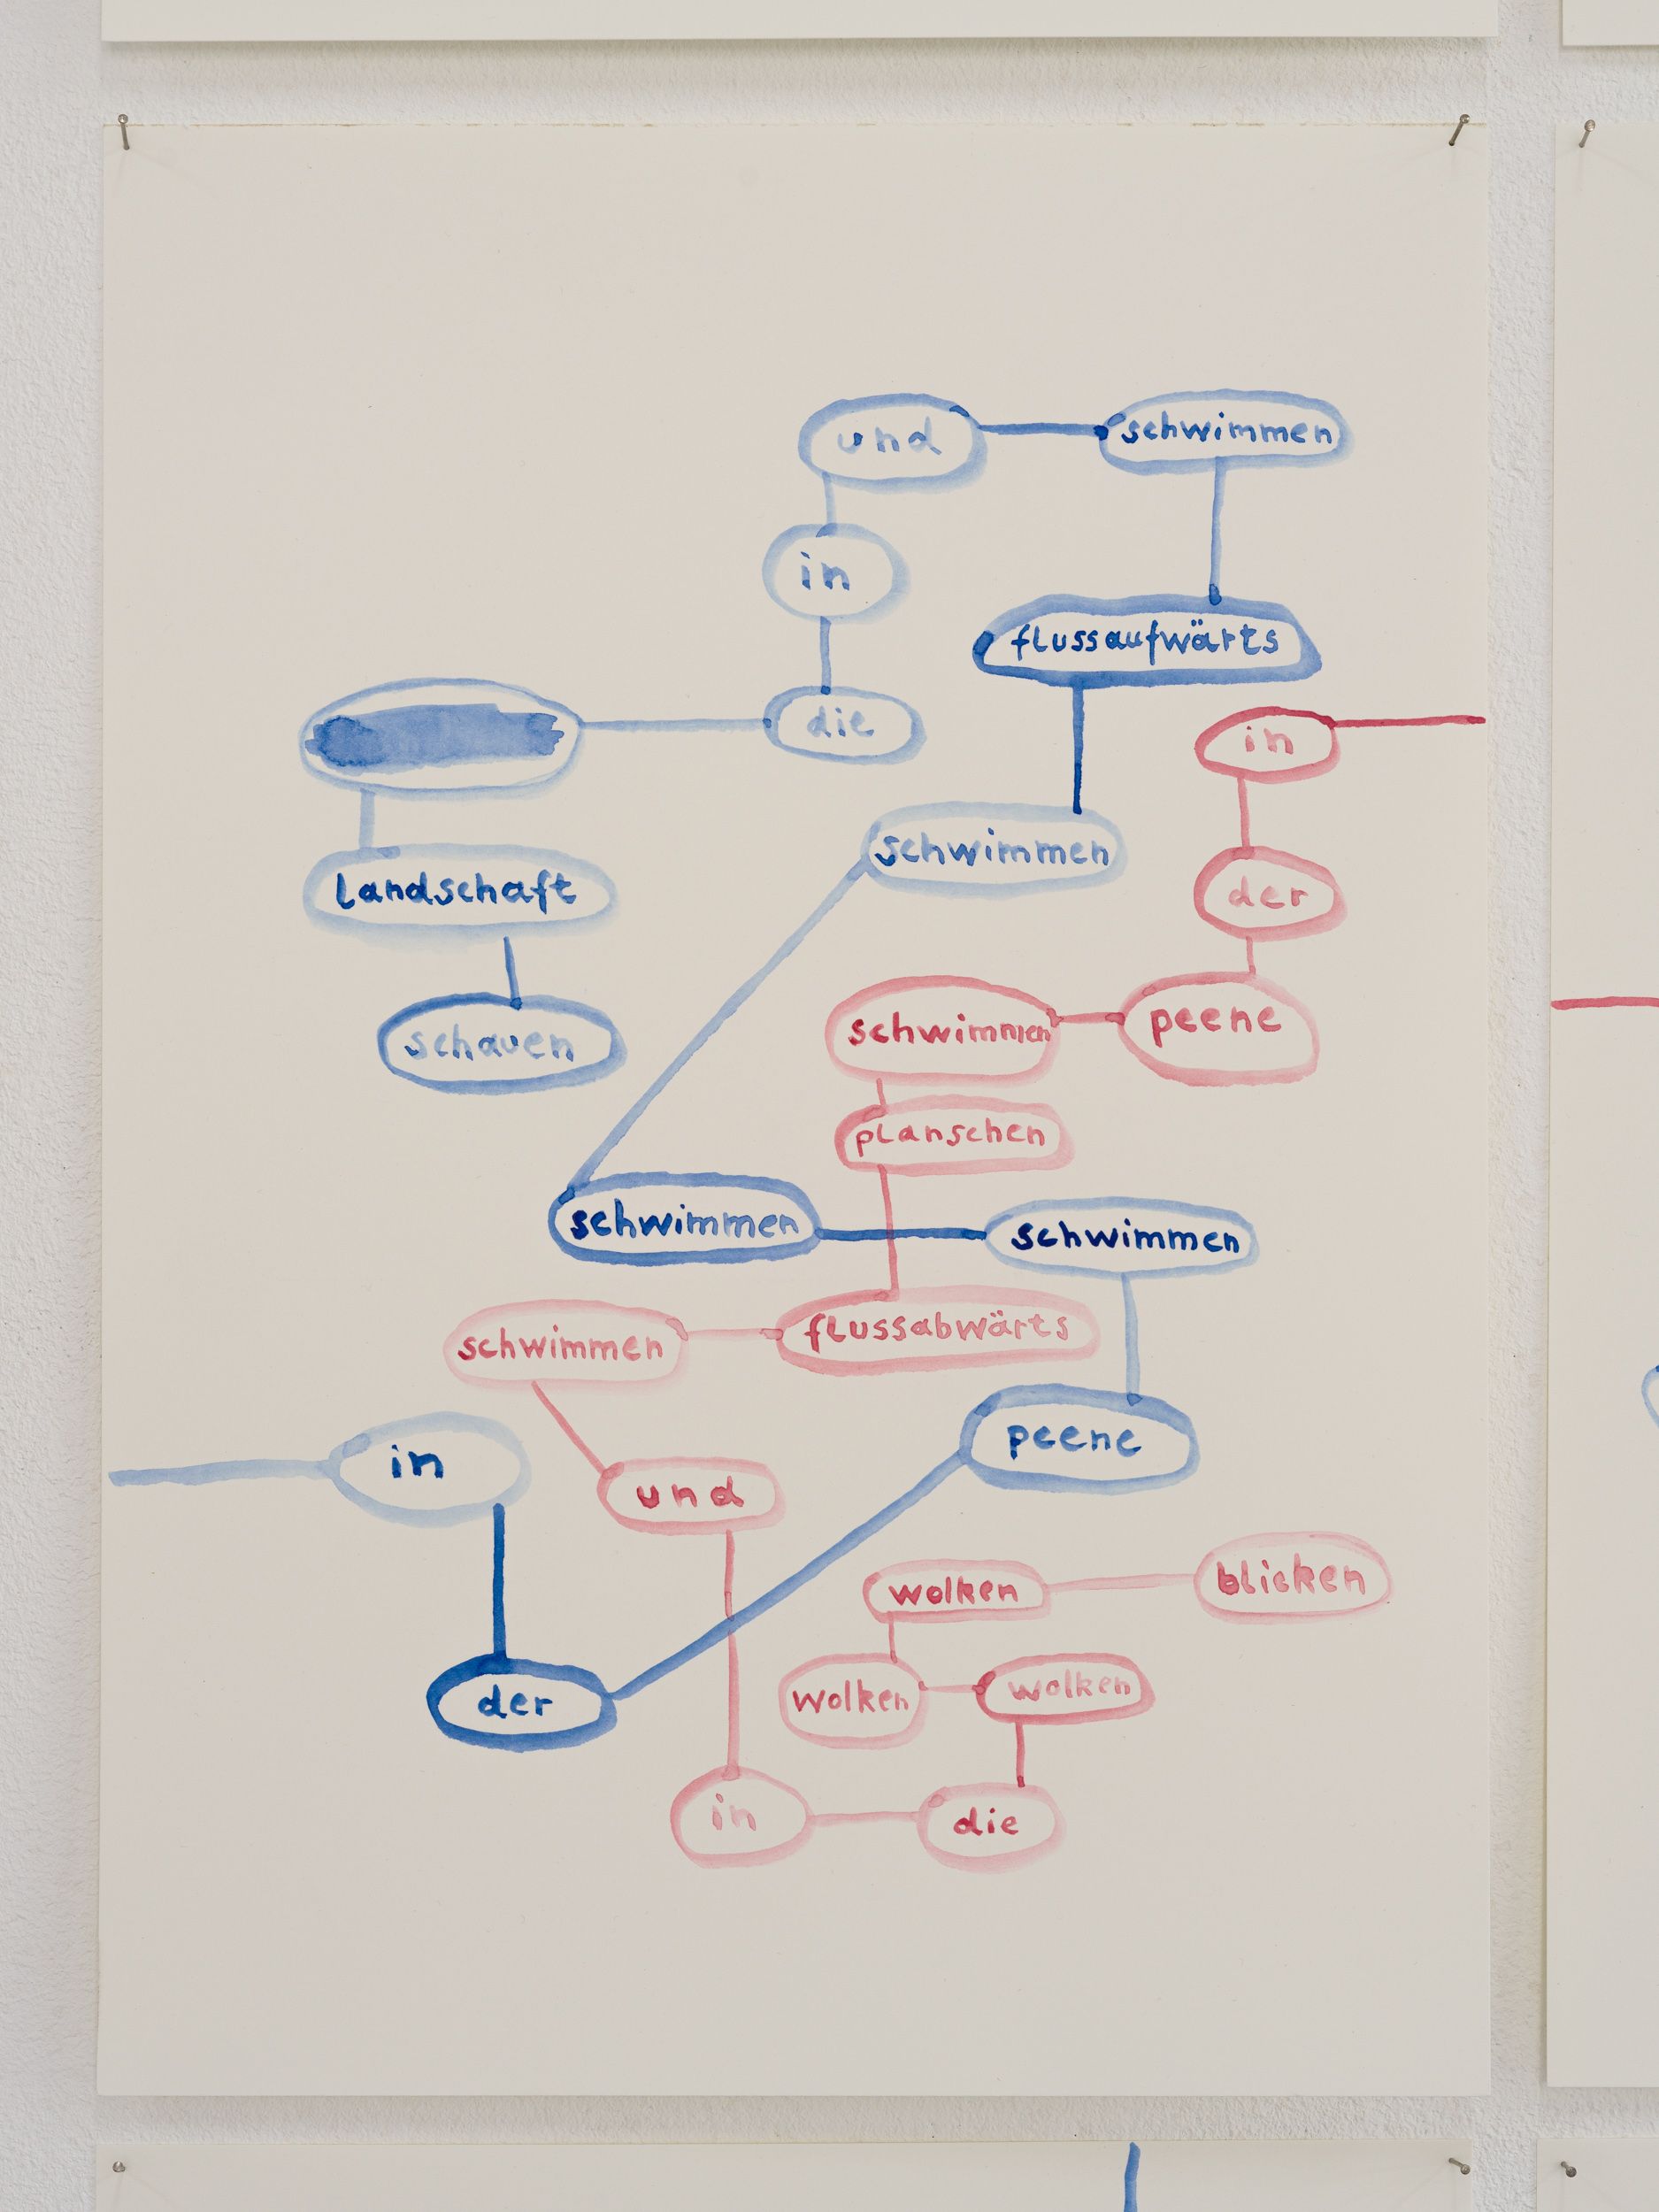 und
schwimmen
in
flussaufwärts
die
in
schwimmen
landschaft
der
schauen
schwimmen
peene
planschen
schwimmen
schwimmen
flussabwärts
schwimmen
peene
in
und
blicken
wolken
der
wolken
wolken
in
die